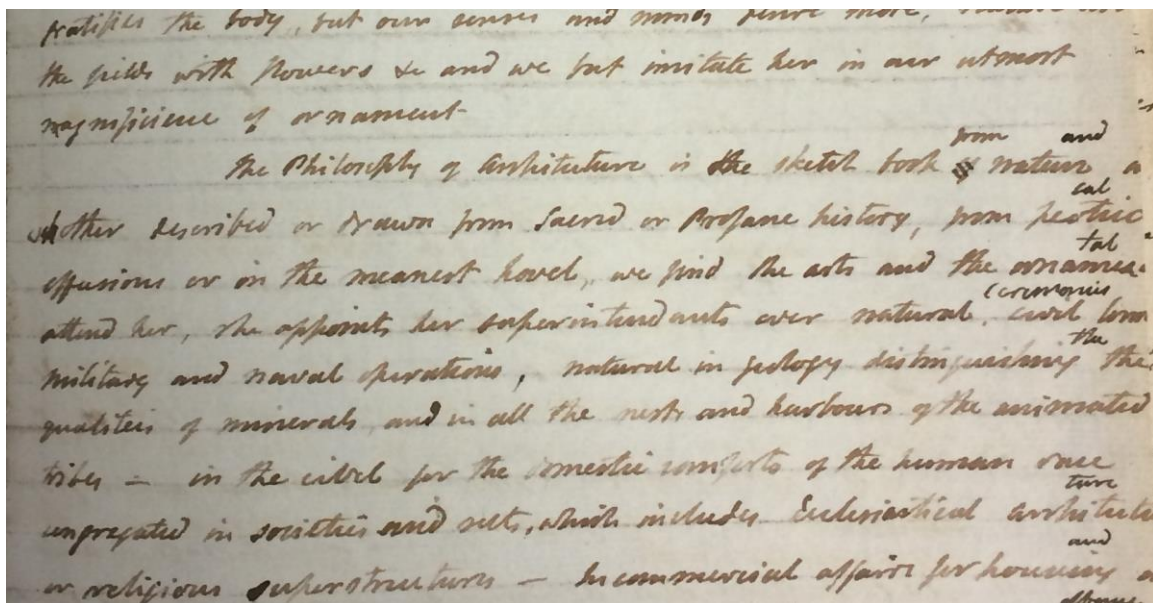 gratifies the body, but our senses and minds desire more, nature
the fields with flowers &c and we but imitate her in our utmost
magnificience of ornament
from and
The Philosophy of Architecture is the sketch book of nature a
cal
whether described or drawn from Sacred or Profane history, from poetric
tal
effusions or in the meanest hovel, we find the arts and the ornamen
ceremonies
attend her, she appoints her superintendants over natural, civil
the
military and naval operations, natural in geology distinguishing the
qualities of minerals and in all the nests and harbours of the animated
tribes — in the civil for the domestic comforts of the human race
ture
congregated in societies and sects, which includes Ecclesiastical architectu
and
or religious superstructures — In commercial affairs for housing